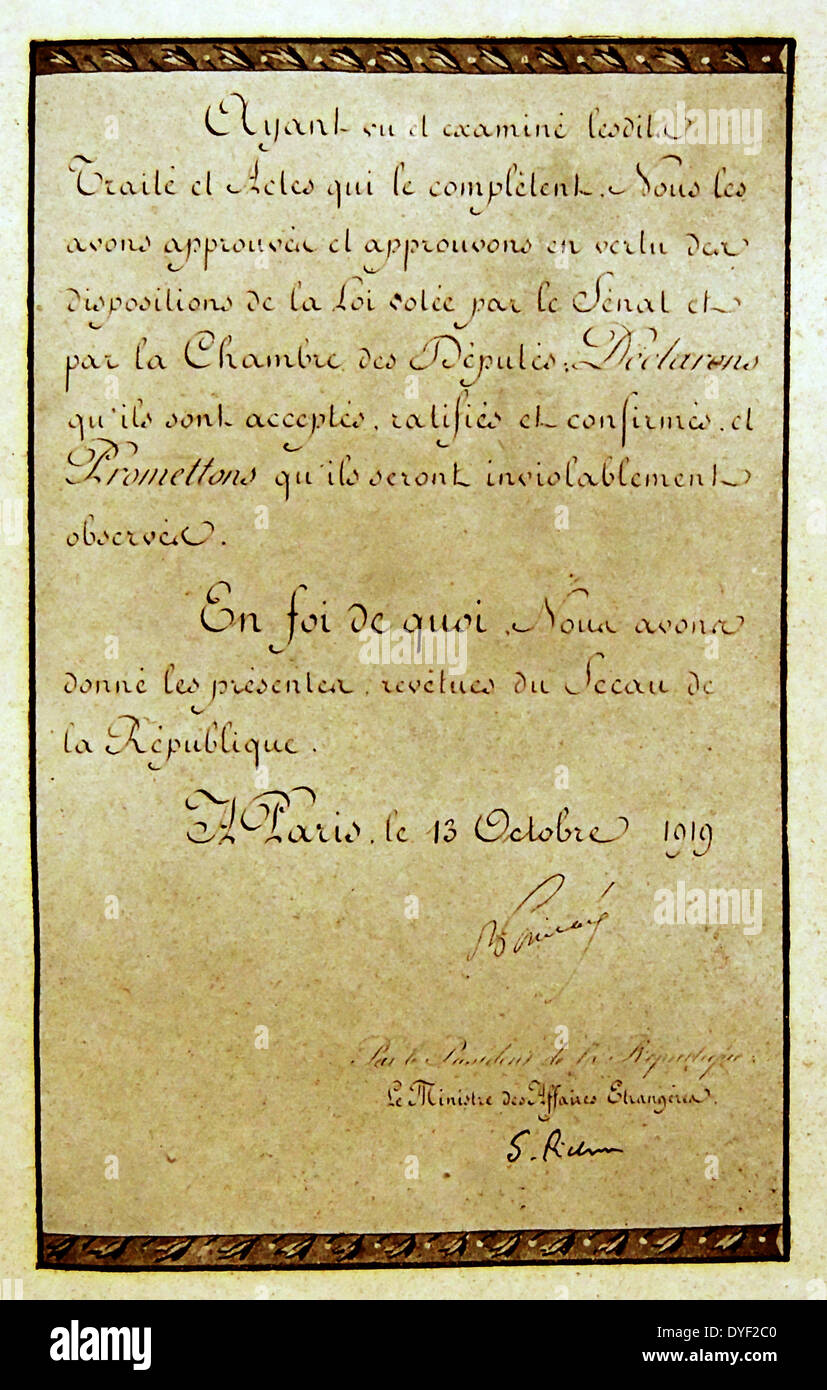 Ayant vu et examiné lesdits
Traité et Actes qui le complètent, Nous les
avons approuvés et approuvons en vertu des
dispositions de la Loi votée par le Sénat et
par la Chambre des Députés; Déclarons
qu'ils sont acceptés, ratifiés et confirmés, et
Promettons qu'ils seront inviolablement
observés.
En foi de quoi, Nous avons
donné les présentes, revêtues du Sceau de
la République.
A Paris, le 13 Octobre 1919
R Poincaré
Par le Président de la République:
Le Ministre des Affaires Etrangères.
S. Pichon
alamy
alamy
a alamy stock photo
DYF2C0
www.alamy.com